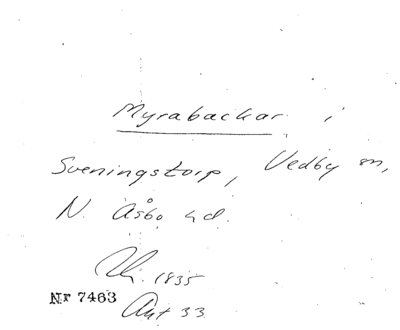 Myrabackar i
Sveningstorp, Vedby sn,
N. Åsbo hd.
1835
Nr 7463
Akt 33